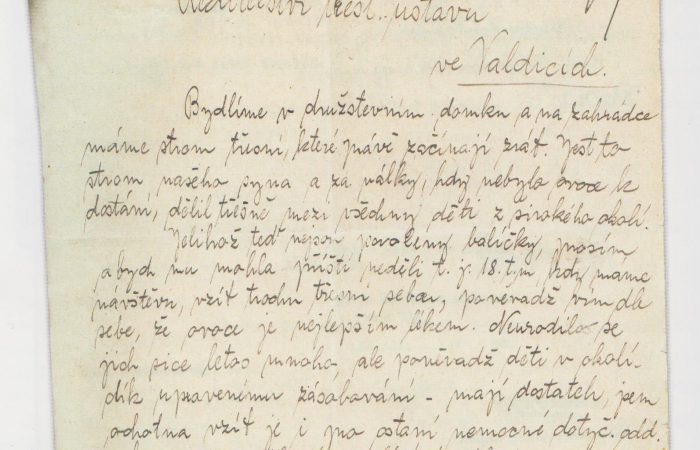 ústavu
ve Valdicích.
Bydlíme v družstevním domku a na zahrádce
máme strom třešní, které právě začínají zrát. Jest to
strom našeho syna a za války, kdy nebylo ovoce k
dostání, dělil třešně mezi všechny děti z širokého okolí.
Jelikož teď nejsou povoleny balíčky, prosím
abych mu mohla příští neděli t. j. 18. t.m, kdy máme
návštěvu, vzít trochu třešní sebou, poněvadž vím dle
sebe, že ovoce je nejlepším lékem. Neurodilo se
jich sice letos mnoho, ale poněvadž děti v okolí-
dík upravenému zásobování - mají dostatek, jsem
ochotna vzít je i pro ostaní nemocné dotyč. odd.